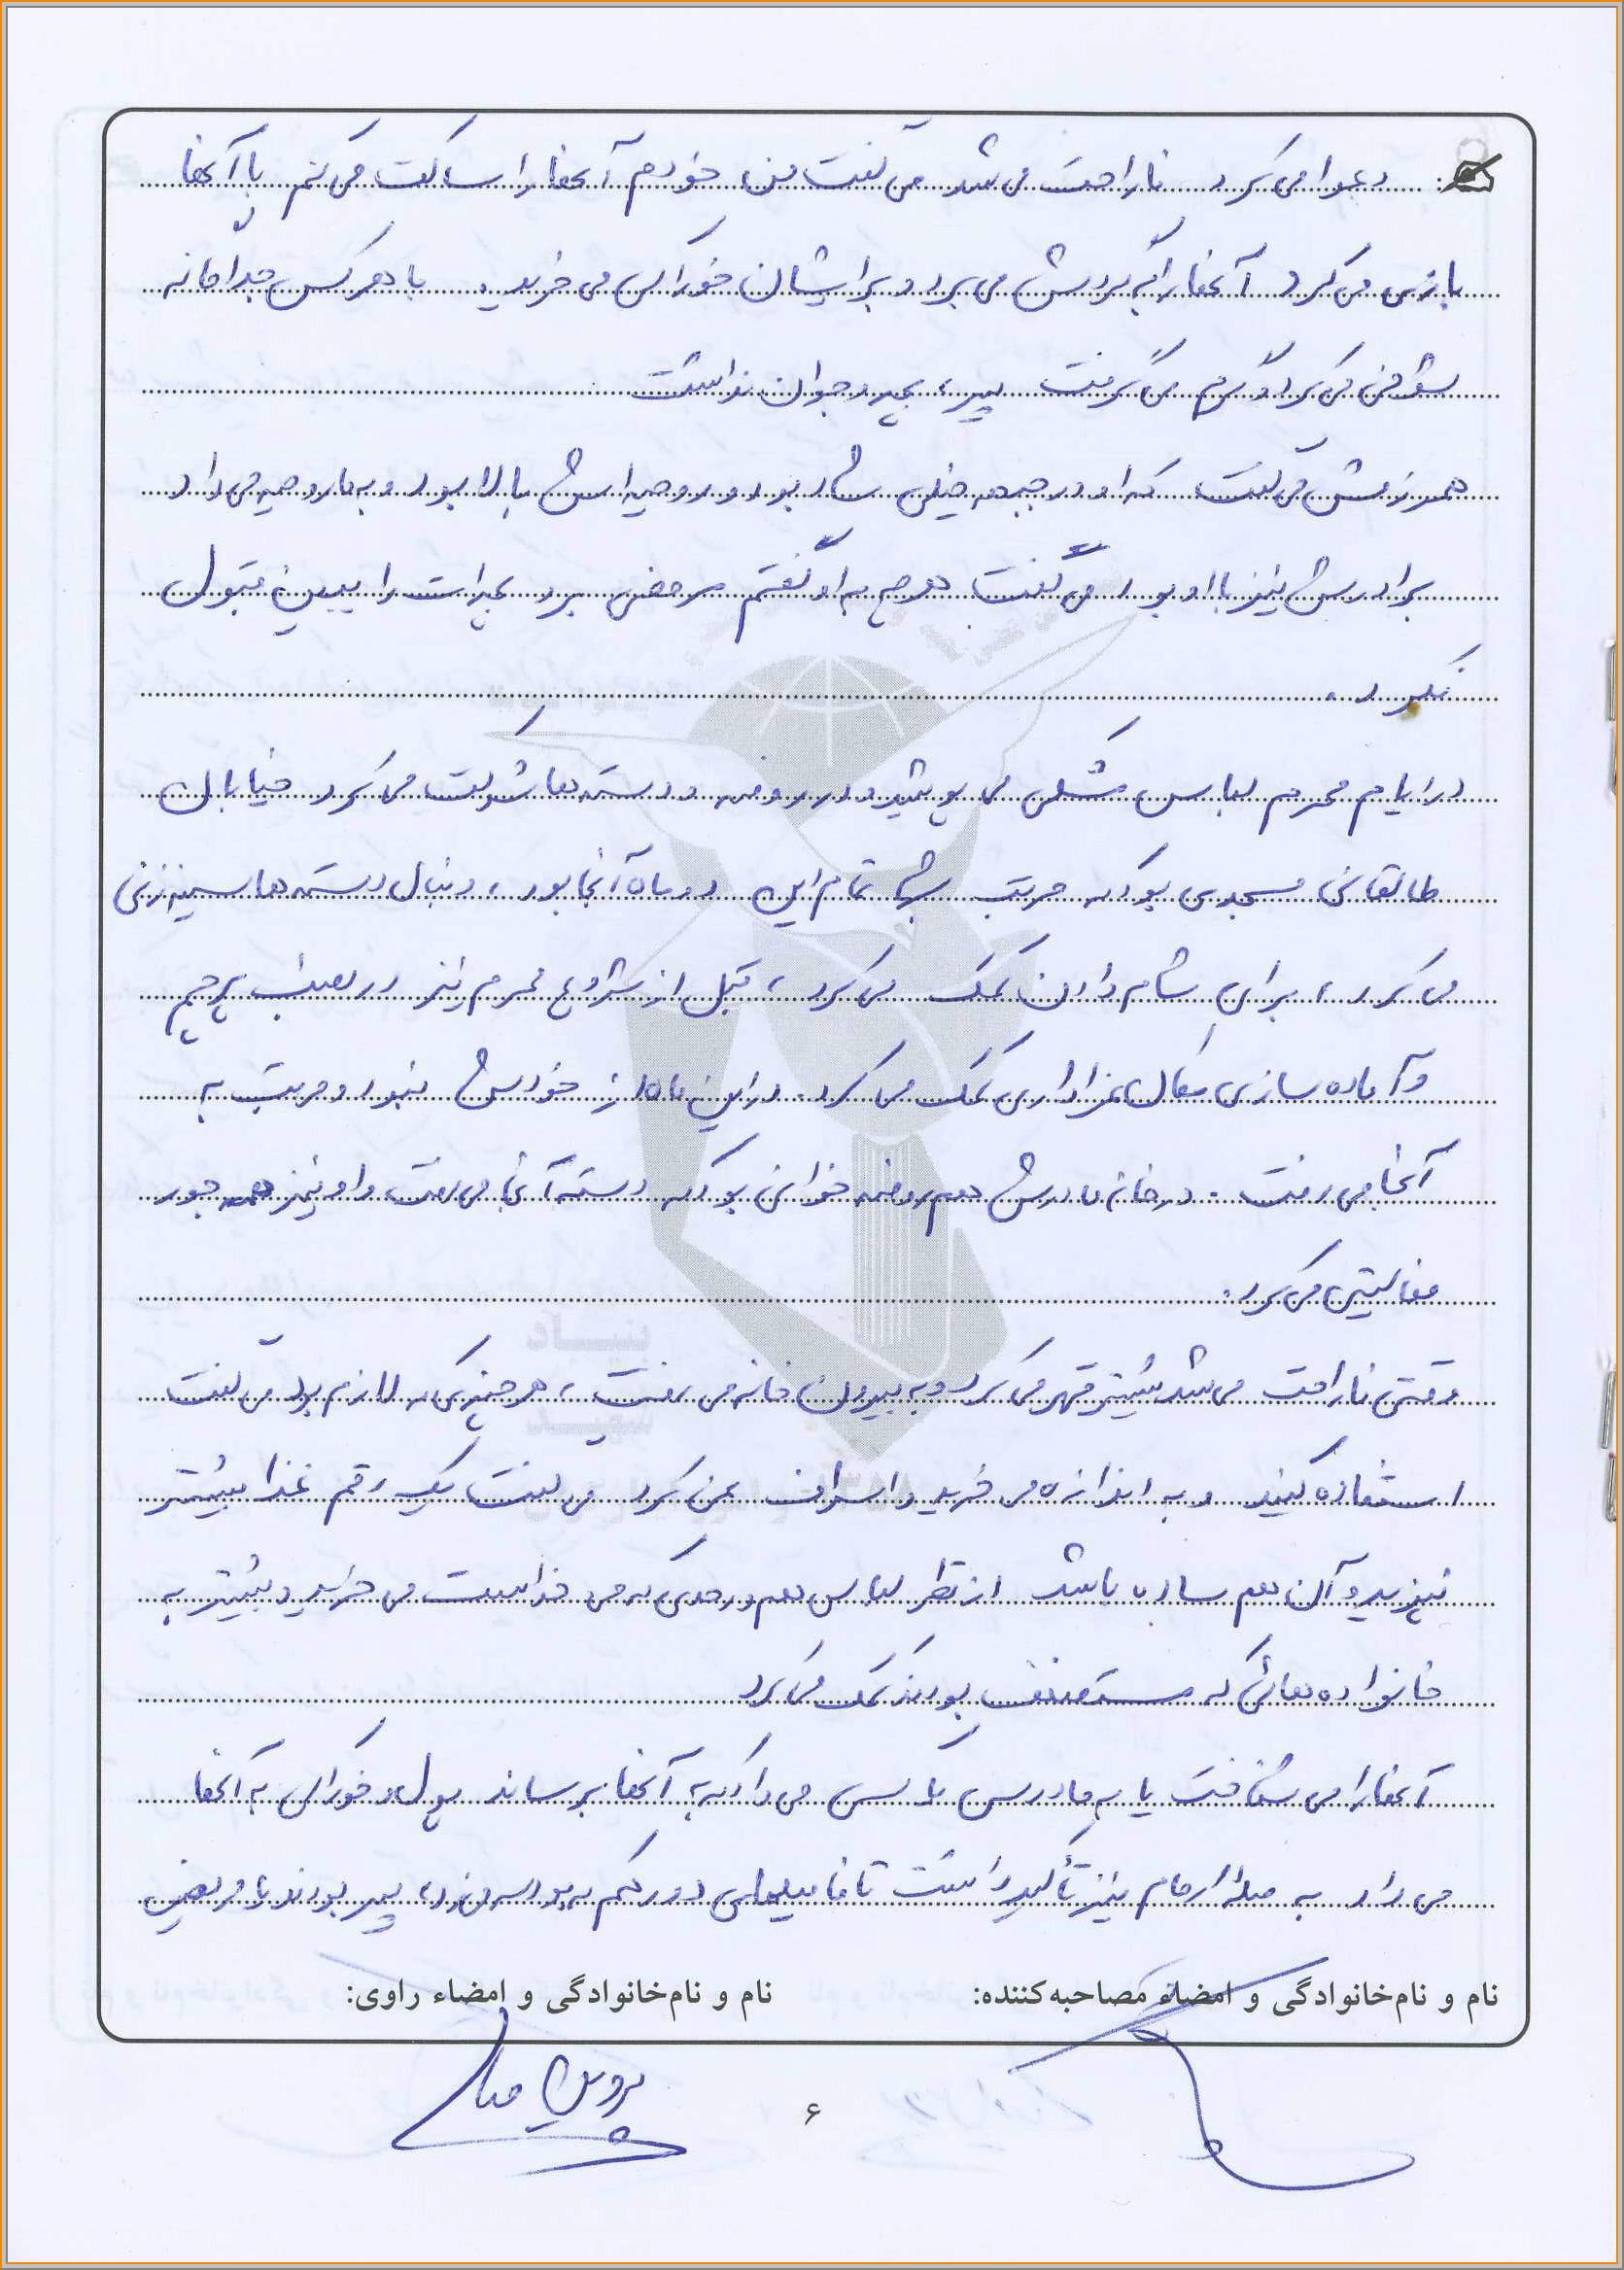 دعوا می کرد ناراحت می شد می گفت من خودم آنها را ساکت می کنم با آنها
بازی می کرد آنها را به گردش می برد و برایشان خوراکی می خرید. با هر کس جداگانه
شوخی می کرد و گرم می گرفت پیر، بچه و جوان نداشت
همرزمش می گفت که او در جبهه خیلی شاد بود و روحیه اش بالا بود و به ما روحیه می داد
برادرش نیز با او بود می گفت هرچه به او گفتم مرخصی برو بچه ات را ببین قبول
نکرد.
در ایام محرم لباس مشکی می پوشید و در روضه و دسته ها شرکت می کرد خیابان
طالقانی مسجدی بود که مرتب شبها تمام این دو ماه آنجا بود، دنبال دسته ها سینه زنی
می کرد، برای شام دادن کمک می کرد، قبل از شروع محرم نیز در نصب پرچم
و آماده سازی مکان عزاداری کمک می کرد. در این ماه از خودش نبود و مرتب به
آنجا می رفت. در خانه مادرش هم روضه خوانی بود که دسته آنجا می رفت و او نیز همه جور
فعالیتی می کرد.
وقتی ناراحت می شد بیشتر قهر می کرد و به بیرون خانه می رفت، هر چیزی که لازم بود می گفت
استفاده کنید و به اندازه می خرید و اسراف نمی کرد می گفت یک رقم غذا بیشتر
نپزید و آن هم ساده باشد از نظر لباس هم در حدی که می خواست می خرید و بیشتر به
خانواده هائی که مستضعف بودند کمک می کرد
آنها را می شناخت یا به مادرش یا کسی می داد که به آنها برساند پول و خوراکی به آنها
می داد به صله ارحام نیز تأکید داشت تا فامیلهای دور هم پیر بودند یا مریض
نام و نام‌خانوادگی و امضاء مصاحبه‌کننده: نام و نام‌خانوادگی و امضاء راوی:
پروین
۶